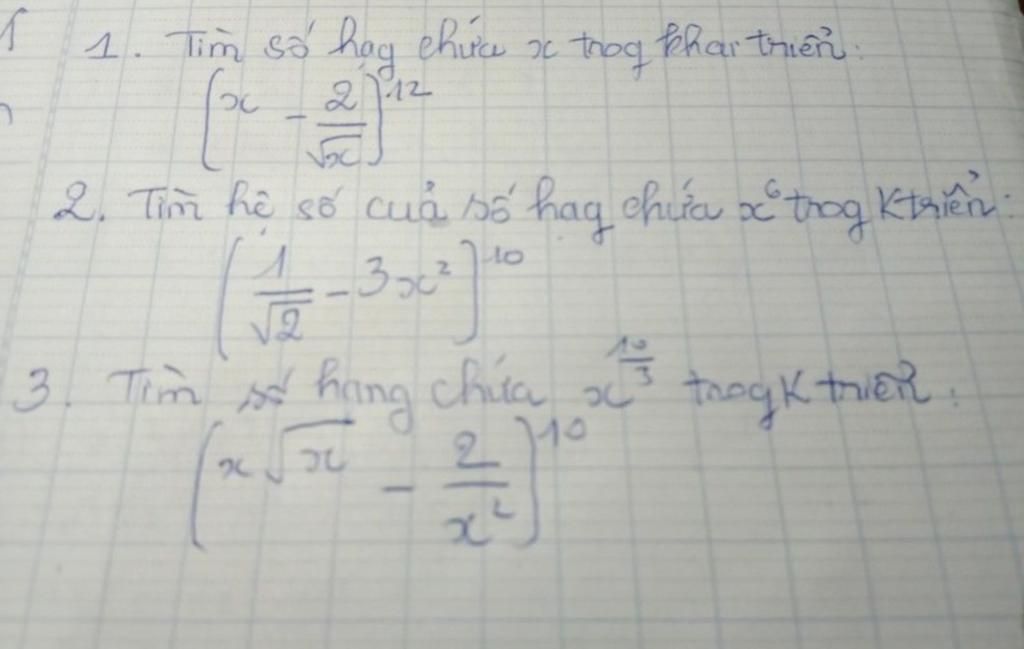 1. Tìm số hạg chứa x trog khai triển:
[x - 2/√x]^12
2. Tìm hệ số cuả số hạg chứa x^6 trog Ktriển:
[1/√2 - 3x²]^10
3. Tìm số hạng chứa x^(10/3) trogKtriển:
(x√x - 2/x²)^10